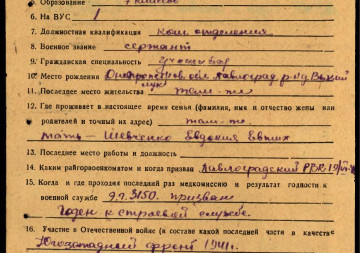 5. Образование 7 классов
6. На ВУС 1
7. Должностная квалификация ком. отделения
8. Военное звание сержант
9. Гражданская специальность учащийся
10. Место рождения Днепропетров. обл. Павлоград. р-н д.
11. Последнее место жительства там-же
12. Где проживает в настоящее время семья (фамилия, имя и отчество жены или
родителей и точный их адрес) там-же,
мать – Шевченко Евдокия
13. Последнее место работы и должность
14. Каким райгорвоенкоматом и когда призван Павлоградский РВК
15. Когда и где проходил последний раз медкомиссию и результат годности к
военной службе призван
Годен к строевой службе.
16. Участие в Отечественной войне (в составе какой последней части в качестве
Югозападный фронт 1941г.